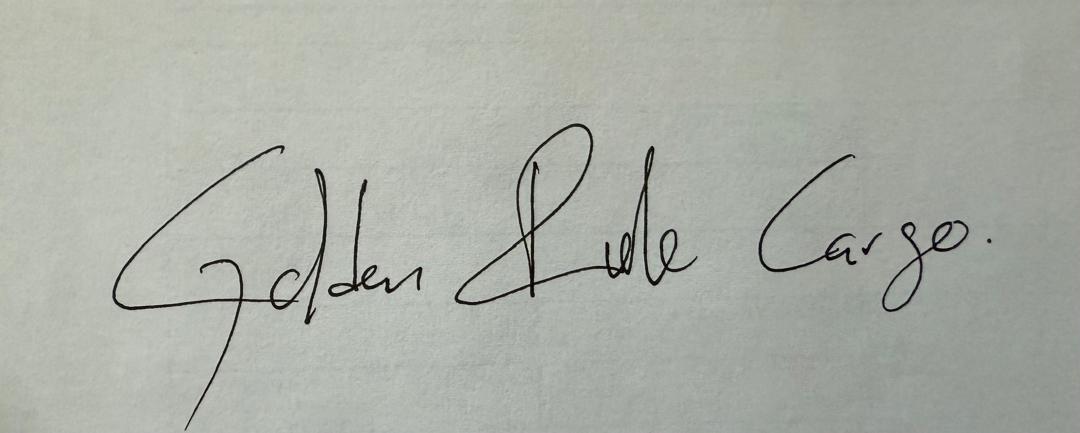 Golden Rule Cargo.